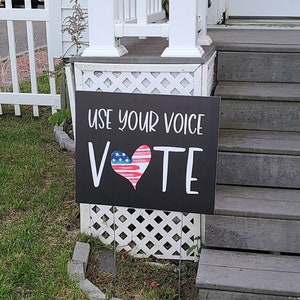 USE YOUR VOICE
VOTE